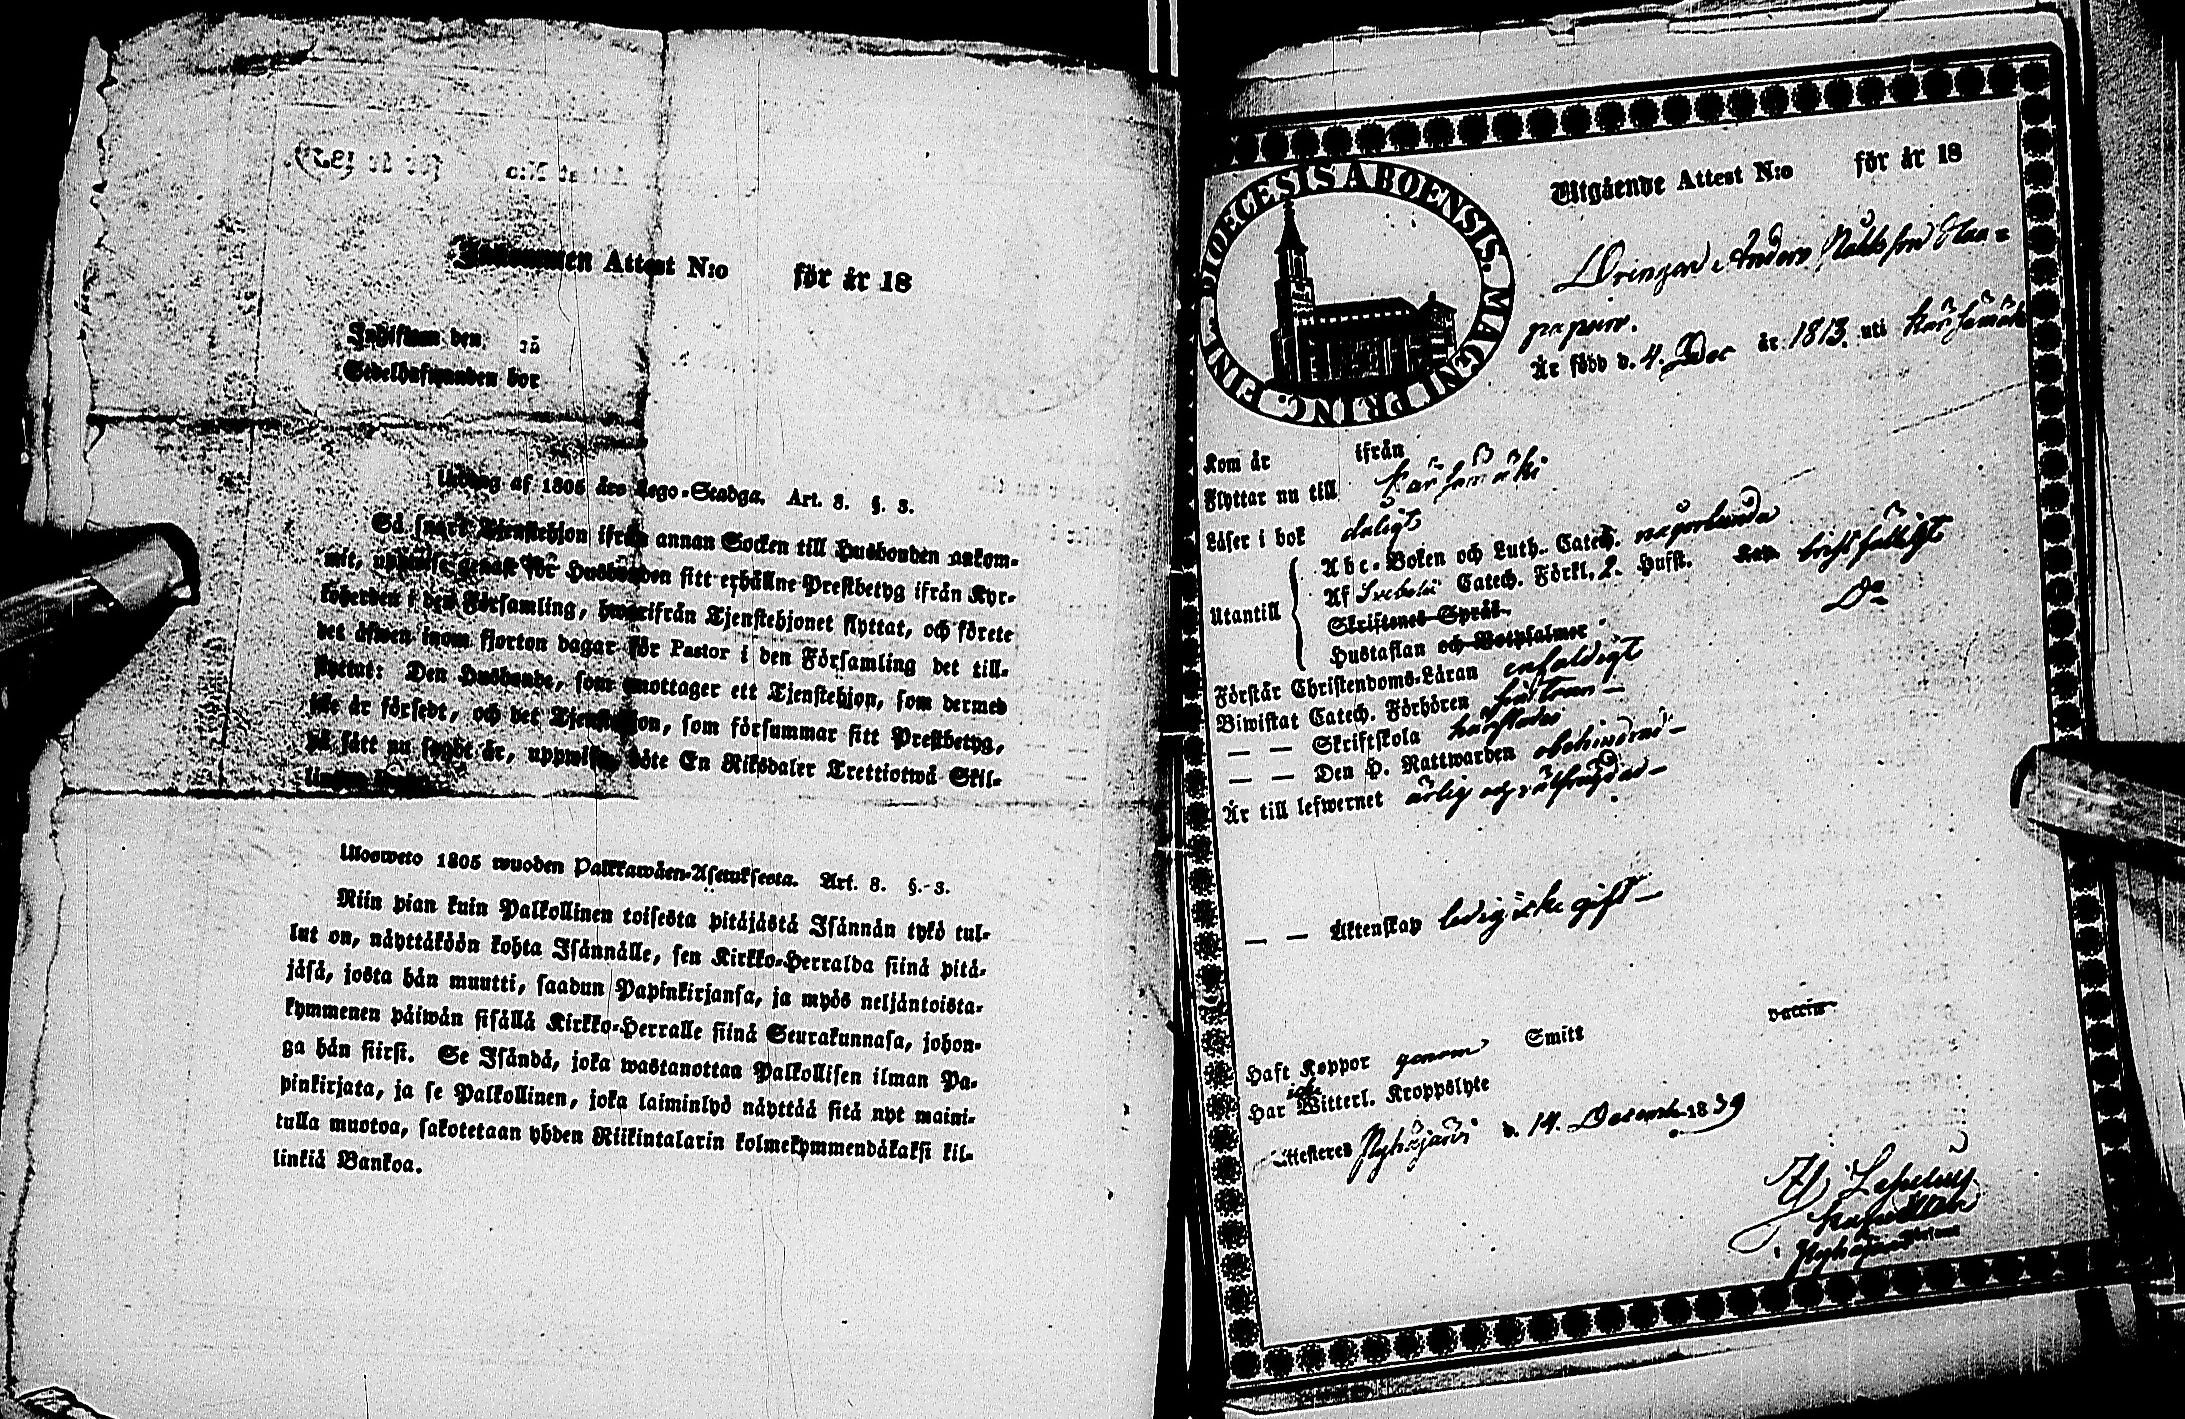 Inkommen Attest N:o för år 18
Inskifwen den
Sedelhafwanden bor
Utdrag af 1805 års Lego-Stadga. Art. 8. §. 3.
Så snart Tjenstehjon ifrån annan Socken till Husbonden ankom-
mit, uppwise genast för Husbonden sitt erhållne Prestbetyg ifrån Kyr-
koherden i den Församling, hwarifrån Tjenstehjonet flyttat, och förete
det äfwen inom fjorton dagar för Pastor i den Församling det till-
flyttat: Den Husbonde, som emottager ett Tjenstehjon, som dermed
icke är försedt, och det Tjenstehjon, som försummar sitt Prestbetyg,
på sätt nu sagdt är, uppwisa, böte En Riksdaler Trettiotwå Skil-
Ulosweto 1805 wuoden Palkkawäen-Asetuksesta. Art. 8. §. 3.
Niin pian kuin Palkollinen toisesta pitäjästä Isännän tykö tul-
lut on, näyttäköön kohta Isännälle, sen Kirkko-Herralda siinä pitä-
jäsä, josta hän muutti, saadun Papinkirjansa, ja myös neljäntoista-
kymmenen päiwän sisällä Kirkko-Herralle siinä Seurakunnasa, johon-
ga hän siirsi. Se Isändä, joka wastanottaa Palkollisen ilman Pa-
pinkirjata, ja se Palkollinen, joka laiminlyö näyttää sitä nyt maini-
tulla muotoa, sakotetaan yhden Riikintalarin kolmekymmendäkaksi kil-
linkiä Bankoa.
DIOECESIS ABOENSIS. MAGNI PRINC. FINL.
Utgående Attest N:o för år 18
Drängen Anders Mattsson Haa=
papuro.
Är född d. 4. Dec år 1813. uti Kärsämäki
Kom år ifrån
Flyttar nu till Kärsämäki
Läser i bok dåligt
Utantill
Abc-Boken och Luth. Catech. någorlunda
Af Svebelii Catech. Förkl. 2. Hufst. Kap. bristfälligt
Skriftenes Språk. Do
Hustaflan och Botpsalmer
Förstår Christendoms-Läran enfaldigt
Biwistat Catech. Förhören
— — Skriftskola härstädes
— — Den H. Nattwarden obehindrad —
Är till lefwernet ärlig och
— — Äktenskap ledig icke gift —
Haft Koppor genom Smitt vaccin
Har icke Witterl. Kroppslyte
Attesteres Pyhäjärvi d. 14. December 1839